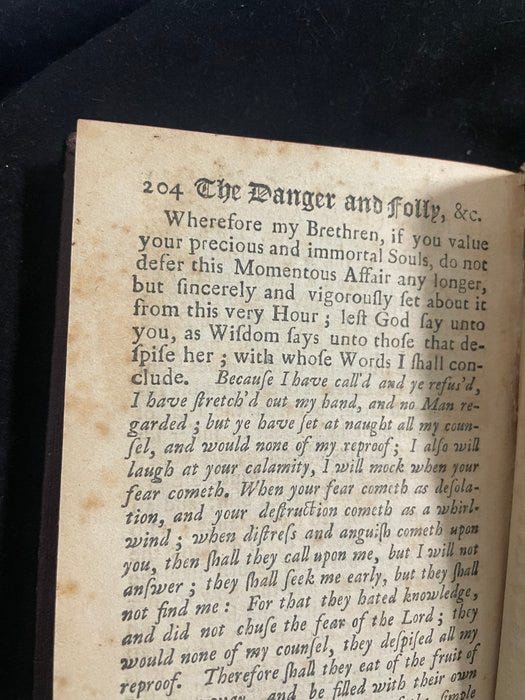 204 The Danger and Folly, &c.
Wherefore my Brethren, if you value
your precious and immortal Souls, do not
defer this Momentous Affair any longer,
but ſincerely and vigorouſly ſet about it
from this very Hour; leſt God ſay unto
you, as Wiſdom ſays unto thoſe that de-
ſpiſe her; with whoſe Words I ſhall con-
clude. Becauſe I have call'd and ye refus'd,
I have ſtretch'd out my hand, and no Man re-
garded; but ye have ſet at naught all my coun-
ſel, and would none of my reproof; I alſo will
laugh at your calamity, I will mock when your
fear cometh. When your fear cometh as deſola-
tion, and your deſtruction cometh as a whirl-
wind; when diſtreſs and anguiſh cometh upon
you, then ſhall they call upon me, but I will not
anſwer; they ſhall ſeek me early, but they ſhall
not find me: For that they hated knowledge,
and did not chuſe the fear of the Lord; they
would none of my counſel, they deſpiſed all my
reproof. Therefore ſhall they eat of the fruit of
way, and be filled with their own
ſimple